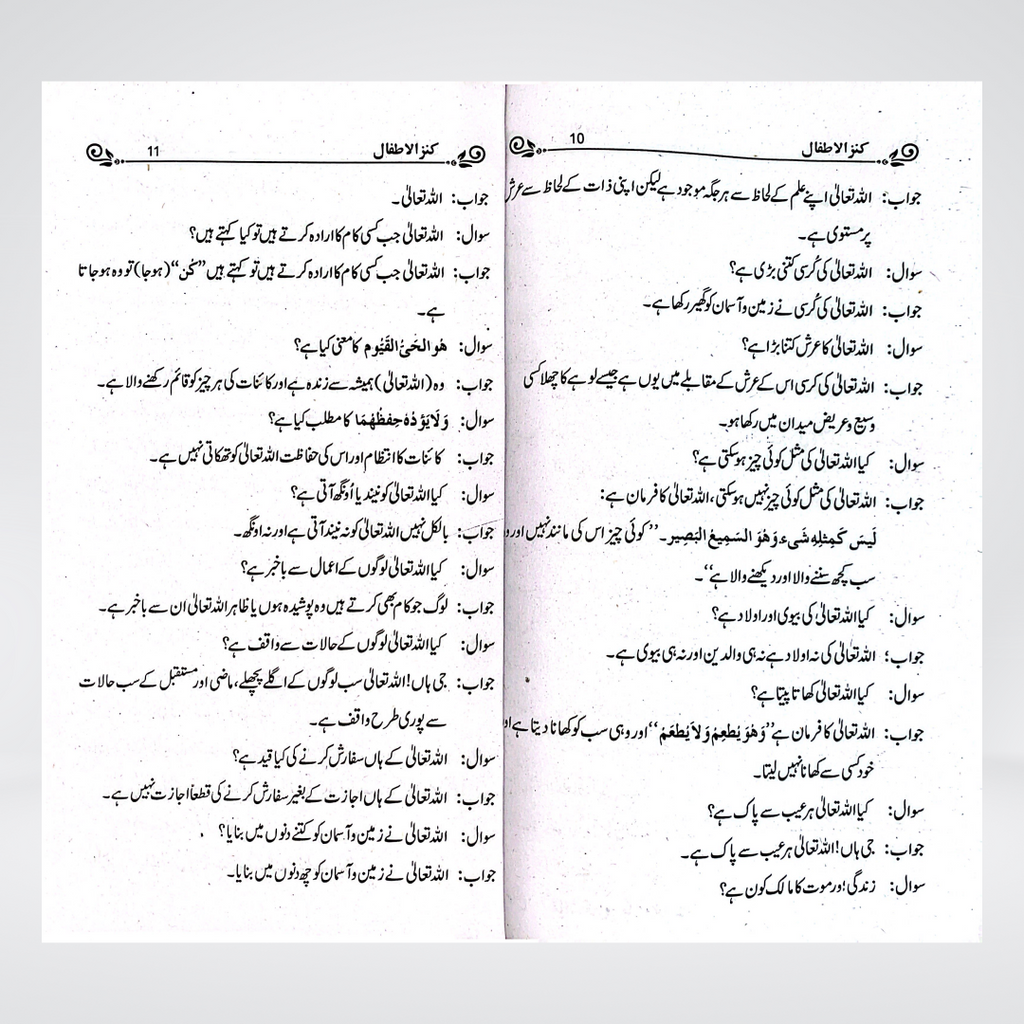 کنز الاطفال 10
جواب: اللہ تعالیٰ اپنے علم کے لحاظ سے ہر جگہ موجود ہے لیکن اپنی ذات کے لحاظ سے عرش
پر مستوی ہے۔
سوال: اللہ تعالیٰ کی کُرسی کتنی بڑی ہے؟
جواب: اللہ تعالیٰ کی کُرسی نے زمین و آسمان کو گھیر رکھا ہے۔
سوال: اللہ تعالیٰ کا عرش کتنا بڑا ہے؟
جواب: اللہ تعالیٰ کی کرسی اس کے عرش کے مقابلے میں یوں ہے جیسے لوہے کا چھلا کسی
وسیع و عریض میدان میں رکھا ہو۔
سوال: کیا اللہ تعالیٰ کی مثل کوئی چیز ہو سکتی ہے؟
جواب: اللہ تعالیٰ کی مثل کوئی چیز نہیں ہو سکتی، اللہ تعالیٰ کا فرمان ہے:
لَیسَ کَمِثلِهِ شَیء وَهُوَ السَمِیعُ البَصِیر۔ ’’کوئی چیز اس کی مانند نہیں اور وہ
سب کچھ سننے والا اور دیکھنے والا ہے‘‘۔
سوال: کیا اللہ تعالیٰ کی بیوی اور اولاد ہے؟
جواب: اللہ تعالیٰ کی نہ اولاد ہے نہ ہی والدین اور نہ ہی بیوی ہے۔
سوال: کیا اللہ تعالیٰ کھاتا پیتا ہے؟
جواب: اللہ تعالیٰ کا فرمان ہے ’’وَهُوَ یُطعِمُ وَلاَ یُطعَمُ‘‘ اور وہی سب کو کھانا دیتا ہے اور
خود کسی سے کھانا نہیں لیتا۔
سوال: کیا اللہ تعالیٰ ہر عیب سے پاک ہے؟
جواب: جی ہاں! اللہ تعالیٰ ہر عیب سے پاک ہے۔
سوال: زندگی اور موت کا مالک کون ہے؟
کنز الاطفال 11
جواب: اللہ تعالیٰ۔
سوال: اللہ تعالیٰ جب کسی کام کا ارادہ کرتے ہیں تو کیا کہتے ہیں؟
جواب: اللہ تعالیٰ جب کسی کام کا ارادہ کرتے ہیں تو کہتے ہیں ’’کُن‘‘ (ہو جا) تو وہ ہو جاتا
ہے۔
سوال: هُوَ الحَیُّ القَیُّوم کا معنی کیا ہے؟
جواب: وہ (اللہ تعالیٰ) ہمیشہ سے زندہ ہے اور کائنات کی ہر چیز کو قائم رکھنے والا ہے۔
سوال: وَلَا یَؤُدُهُ حِفظُهُمَا کا مطلب کیا ہے؟
جواب: کائنات کا انتظام اور اس کی حفاظت اللہ تعالیٰ کو تھکاتی نہیں ہے۔
سوال: کیا اللہ تعالیٰ کو نیند یا اُونگھ آتی ہے؟
جواب: بالکل نہیں اللہ تعالیٰ کو نہ نیند آتی ہے اور نہ اونگھ۔
سوال: کیا اللہ تعالیٰ لوگوں کے اعمال سے باخبر ہے؟
جواب: لوگ جو کام بھی کرتے ہیں وہ پوشیدہ ہوں یا ظاہر اللہ تعالیٰ ان سے باخبر ہے۔
سوال: کیا اللہ تعالیٰ لوگوں کے حالات سے واقف ہے؟
جواب: جی ہاں! اللہ تعالیٰ سب لوگوں کے اگلے پچھلے، ماضی اور مستقبل کے سب حالات
سے پوری طرح واقف ہے۔
سوال: اللہ تعالیٰ کے ہاں سفارش کرنے کی کیا قید ہے؟
جواب: اللہ تعالیٰ کے ہاں اجازت کے بغیر سفارش کرنے کی قطعاً اجازت نہیں ہے۔
سوال: اللہ تعالیٰ نے زمین و آسمان کو کتنے دنوں میں بنایا؟
جواب: اللہ تعالیٰ نے زمین و آسمان کو چھ دنوں میں بنایا۔